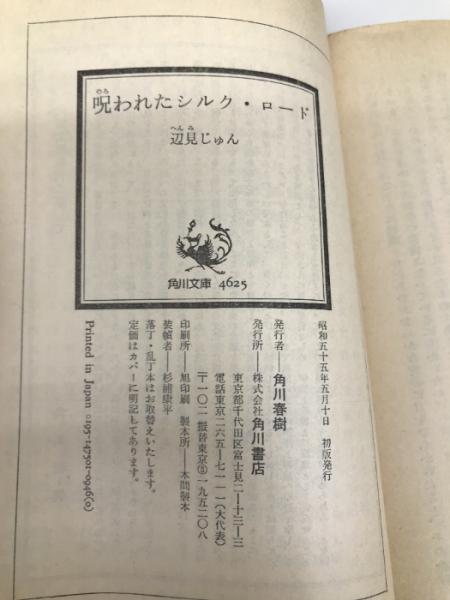 呪われたシルク・ロード
のろ
辺見じゅん
へんみ
角川文庫 4625
昭和五十五年五月十日 初版発行
発行者——角川春樹
発行所——株式会社角川書店
東京都千代田区富士見二—十三—三
電話東京二六五—七一一一(大代表)
〒一〇二 振替東京③一九五二〇八
印刷所——旭印刷 製本所——本間製本
装幀者——杉浦康平
落丁・乱丁本はお取替えいたします。
定価はカバーに明記してあります。
Printed in Japan 0195-147501-0946(0)